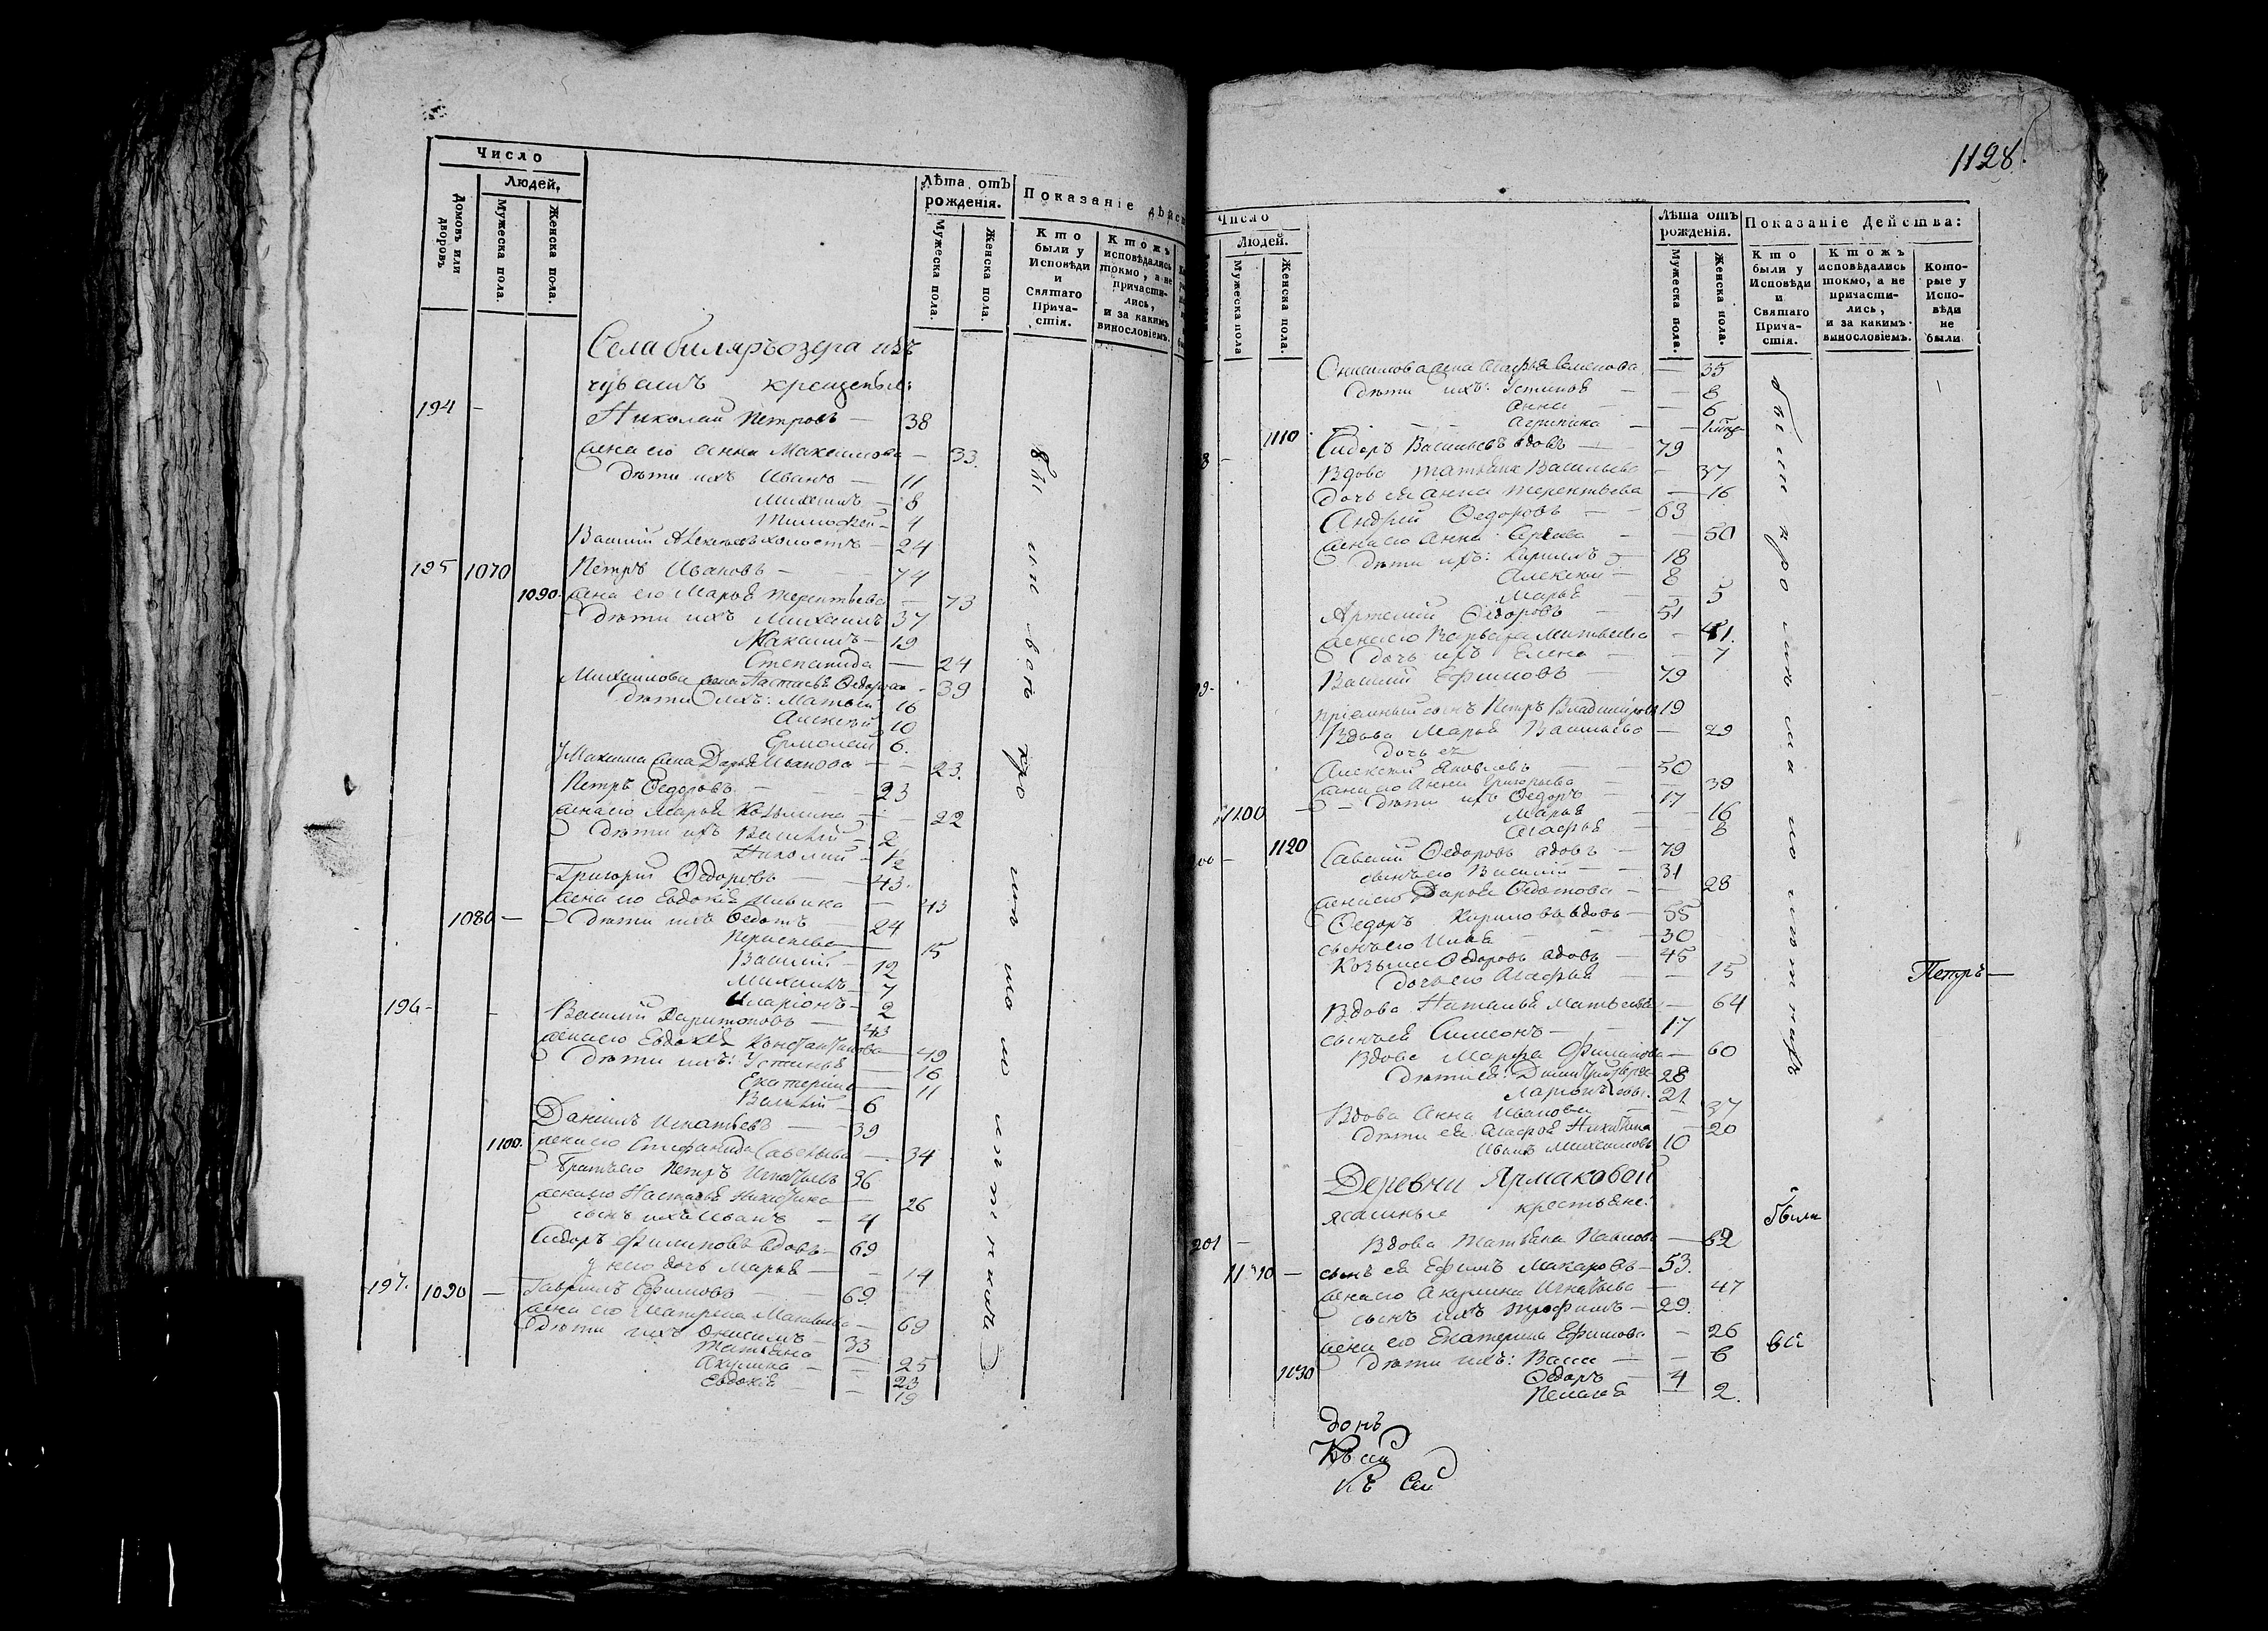 Число
Людей,
Домовъ или дворовъ
Мужеска пола.
Женска пола.
Лѣта отъ рожденія.
Мужеска пола.
Женска пола.
Показаніе дѣйст
Кто были у Исповѣди и Святаго Причастія.
Ктожъ исповѣдались токмо, а не причастились, и за какимъ винословіемъ.
Села билярьозера изъ
чувашъ крещеныхъ
194 - Николай Петровъ — 38
жена его Анна Максимова — 33.
дѣти ихъ Иванъ — 11
Михаилъ — 8
Тимофей — 4
Василий Алексѣевъ холостъ — 24
195 1070 Петръ Ивановъ — 74
1090. жена его Марья Терентьева — 73
дѣти ихъ Михаилъ 37
Максимъ — 19
Степанида — 24
Михаилова жена Настасья Федорова - 39
дѣти ихъ: Матвей 16
Алексѣй 10
Ермолай 6.
у Максима жена Дарья Иванова — 23.
Петръ Федоровъ — 23
жена его Марья Козьмина — 22
дѣти ихъ Василий — 2
Николай - 1/2
Григорий Федоровъ — 43.
жена его Евдокія Ильина — 43
1080 — дѣти ихъ Федотъ — 24
15
Василий — 12
Михаилъ — 7
Иларіонъ — 2
196 - Василий Харитоновъ — 43
жена его Евдокія Константинова — 49
дѣти ихъ: Устинья — 16
Екатерина — 11
Василий — 6
Данилъ Игнатьевъ — 39
1100. жена его Стефанида Савельева — 34
братъ его Петръ Игнатьевъ 36
жена его Настасья Никитина — 26
сынъ ихъ Иванъ — 4
Сидоръ Филиповъ вдовъ — 69
у него дочь Марья — 14
197. 1090 — Гавриилъ Ефимовъ — 69.
жена его Матрена — 69
дѣти ихъ Онисимъ — 33
Татьяна — 25
Акулина — 23
Евдокія — 19
1128.
Число
Людей.
Мужеска пола
Женска пола.
Лѣта отъ рожденія.
Мужеска пола.
Женска пола.
Показаніе Действа:
Кто были у Исповѣди и Святаго Причастія.
Ктожъ исповѣдались токмо, а не причастились, и за какимъ винословіемъ.
Которые у Исповѣди не были
Онисимова жена Агафья Семенова — 35
дѣти ихъ: Устинья — 8
Анна — 6
Агрипина —
1110 Сидоръ Васильевъ вдовъ — 79
Вдова Татьяна Васильева — 37
дочь ея Анна Терентьева — 16
Андрей Федоровъ — 63
жена его Анна — 50
дѣти ихъ: Кирилъ — 18
Алексѣй — 8
Марья — 5
Артемий Федоровъ — 51
жена его Варвара Матвеева — 41.
дочь ихъ Елена — 7
Василий Ефимовъ — 79
пріемный сынъ Петръ Владимировъ 19
Вдова Марья Васильева — 29
дочь ея
Алексѣй Яковлевъ — 50
жена его Анна Григорьева — 39
1100 — дѣти ихъ Федоръ — 17
Марья — 16
Агафья — 8
1120 Савелий Федоровъ вдовъ — 79
сынъ его Василий — 31
жена его Дарья Федотова — 28
Федоръ Кириловъ вдовъ — 55
сынъ его Илья — 30
Козьма Федоровъ вдовъ — 45
дочь его Агафья — 15
Петръ —
Вдова Наталья Матвеева — 64
сынъ ея Симеонъ — 17
Вдова Марфа Филипова — 60
дѣти ея: 28
21
Вдова Анна Иванова — 37
дѣти ея: Агафья Никитина — 20
Иванъ Михаиловъ 10
Деревни Ярмаковой
ясашные крестьяне:
были
201 — Вдова Татьяна Павлова — 82
1110 — сынъ ея Ефимъ Макаровъ — 53.
жена его Акулина Игнатьева — 47
сынъ ихъ Трофимъ — 29.
жена его Екатерина Ефимова — 26
всѣ
дѣти ихъ: — 6
1130 Федоръ — 4
Пелагея — 2.